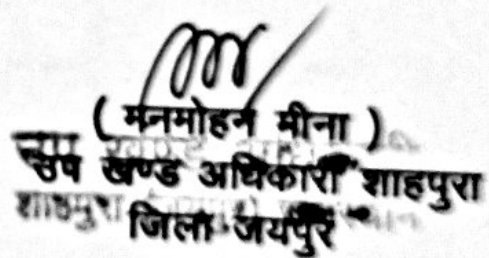 ( मनमोहन मीना )
उप खण्ड अधिकारी शाहपुरा
जिला जयपुर